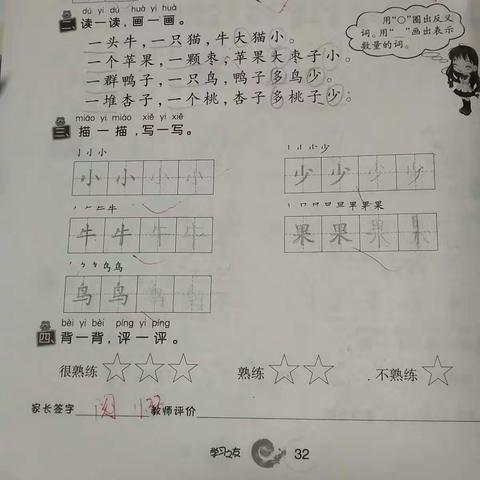 dú yi dú huà yi huà
二、读一读，画一画。
一头牛，一只猫，牛大猫小。
一个苹果，一颗枣，苹果大枣子小。
一群鸭子，一只鸟，鸭子多鸟少。
一堆杏子，一个桃，杏子多桃子少。
用“○”圈出反义
词。用“＿”画出表示
数量的词。
miáo yi miáo xiě yi xiě
三、描一描，写一写。
小 小 小 小
少 少 少 少
牛 牛 牛 牛
果 果 果 果
鸟 鸟
bèi yi bèi píng yi píng
四、背一背，评一评。
很熟练☆☆☆ 熟练☆☆ 不熟练☆
家长签字 阅 教师评价
学习之友 32